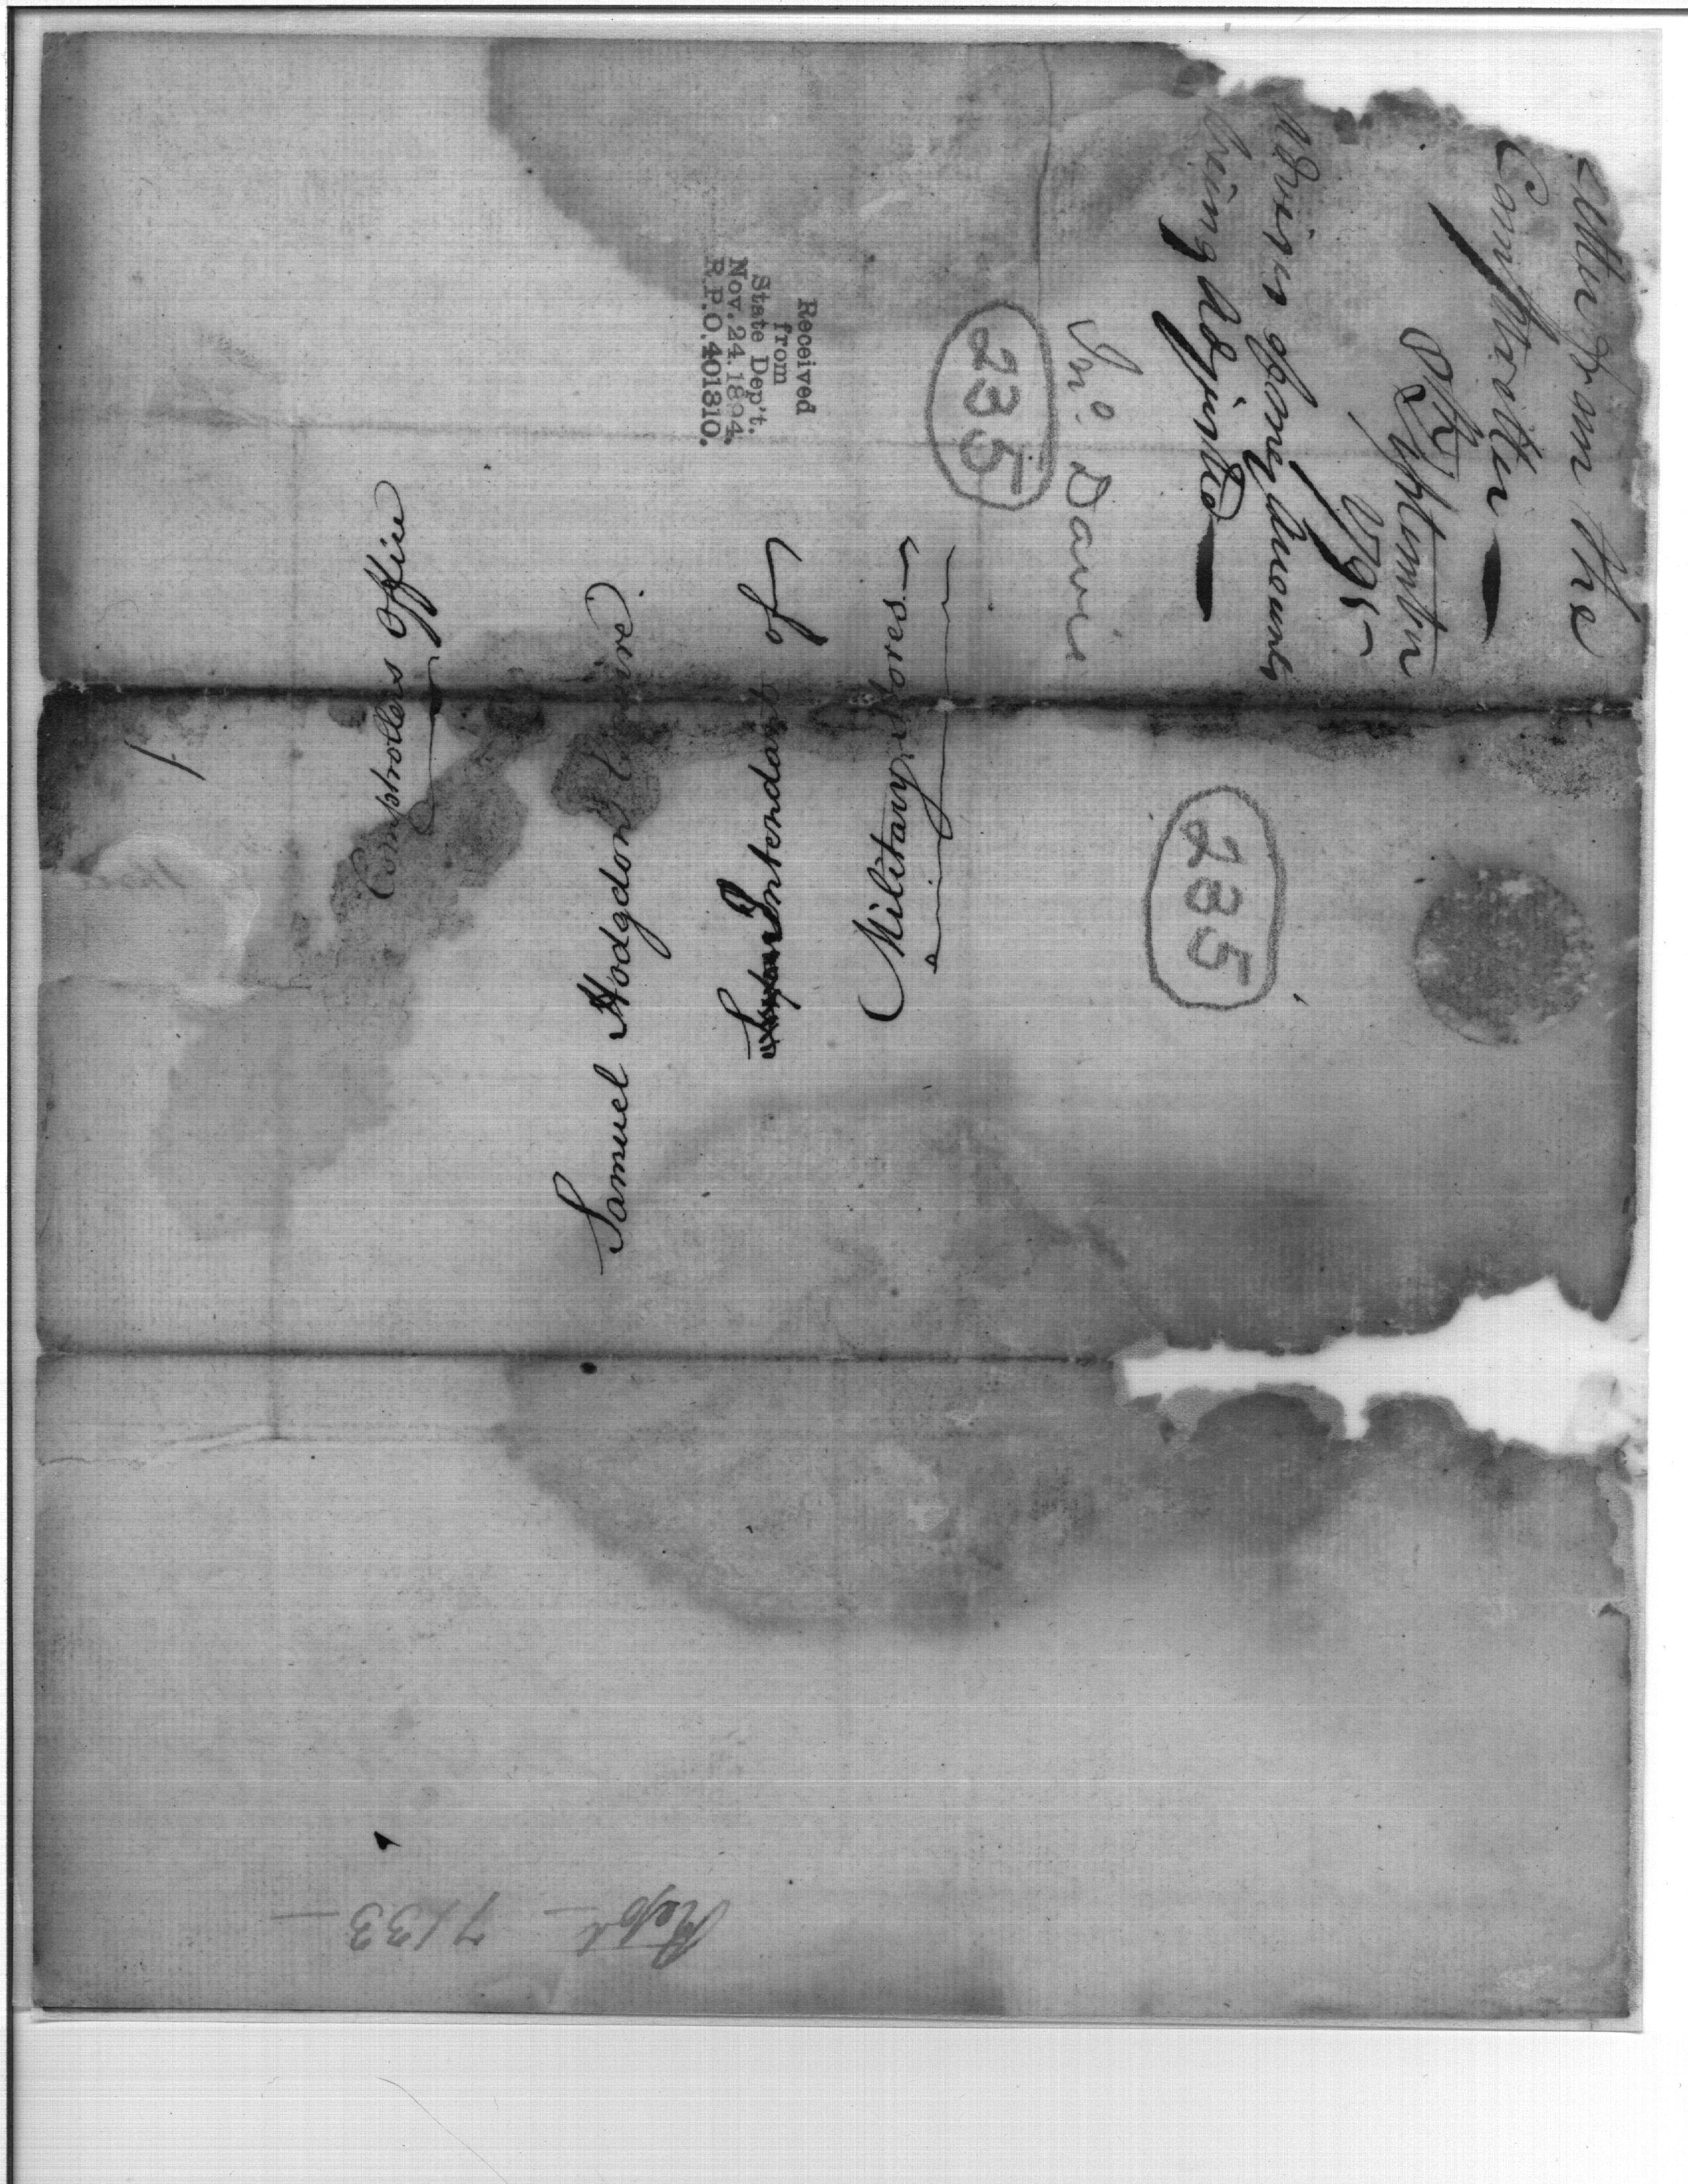 Letter from the
Comptroller
8th September
1795
Advises of money Accounts
being Adjusted
Jno. Davis
235
Received
from
State Dep't.
Nov. 24, 1894.
R.P.O. 401310.
Comptrollers Office
Samuel Hodgdon Esquire
Intendant of
Military Stores
235
7133